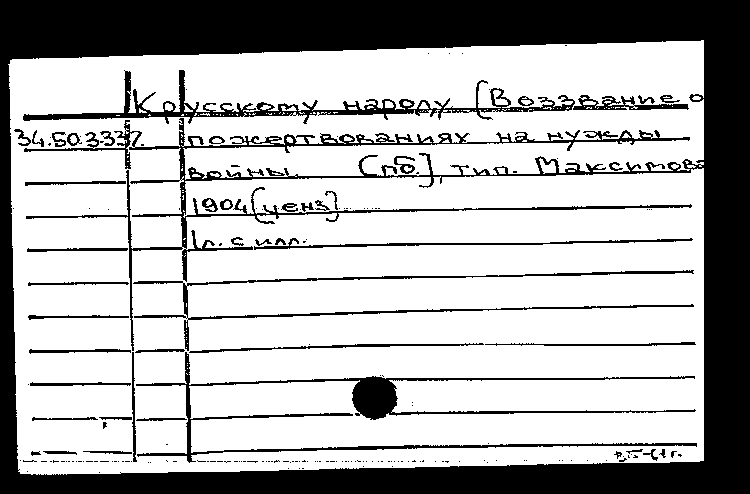 К русскому народу [Воззвание о
34.50.3337. пожертвованиях на нужды
войны. [Пб.], тип. Максимова
1904 [ценз]
1 л. с илл.